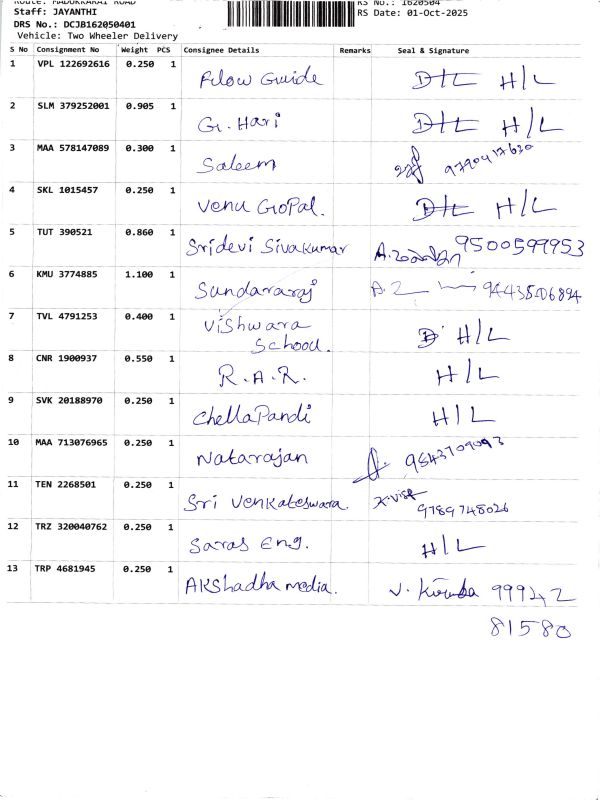 Route: MADUKKARAI ROAD
Staff: JAYANTHI
RS No.: 1620504
DRS No.: DCJB162050401
RS Date: 01-Oct-2025
Vehicle: Two Wheeler Delivery
S No Consignment No Weight PCS Consignee Details Remarks Seal & Signature
1 VPL 122692616 0.250 1 Filow Guide H/L
2 SLM 379252001 0.905 1 G. Hari H/L
3 MAA 578147089 0.300 1 Saleem 9790417630
4 SKL 1015457 0.250 1 Venu GoPal. H/L
5 TUT 390521 0.860 1 Sridevi Sivakumar 9500599953
6 KMU 3774885 1.100 1 Sundararaj
7 TVL 4791253 0.400 1 Vishwara H/L
School.
8 CNR 1900937 0.550 1 R.A.R. H/L
9 SVK 20188970 0.250 1 ChellaPandi H/L
10 MAA 713076965 0.250 1 Natarajan 9543709093
11 TEN 2268501 0.250 1 Sri Venkateswara.
9789748026
12 TRZ 320040762 0.250 1 Saras Eng. H/L
13 TRP 4681945 0.250 1 AKshadha media. 99942
81580